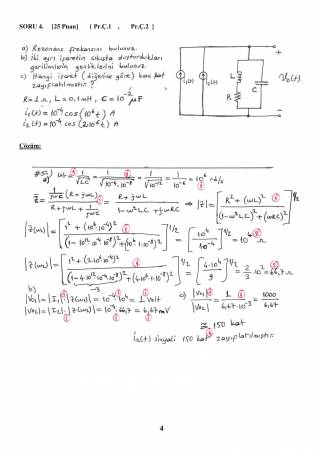 SORU 4. [25 Puan] [ Pr.Ç.1 , Pr.Ç.2 ]
a) Rezonans frekansını bulunuz.
b) İki ayrı işaretin çıkışta oluşturdukları
gerilimlerin genliklerini bulunuz.
c) Hangi işaret (diğerine göre) kaç kat
zayıflatılmıştır?
R=1Ω, L=0,1mH, C=10⁻² μF
i₁(t) = 10⁻⁴ cos(10⁶t) A
i₂(t) = 10⁻⁴ cos(2·10⁶t) A
i₂(t) i₁(t) L R C V₀(t) + -
Çözüm:
a) ω₀ = 1/√LC = 1/√10⁻⁴·10⁻⁸ = 1/√10⁻¹² = 1/10⁻⁶ = 10⁶ rd/s
Z = 1/jωC (R+jωL) / R+jωL + 1/jωC = R+jωL / 1-ω²LC+jωRC ⇒ |Z| = [R²+(ωL)² / (1-ω²LC)²+(ωRC)²]^1/2
|Z(ω₁)| = [1²+(10⁶·10⁻⁴)² / (1-10¹²·10⁻⁴·10⁻⁸)²+(10⁶·10⁻⁸)²]^1/2 = [10⁴/10⁻⁴]^1/2 = 10⁴ Ω
|Z(ω₂)| = [1²+(2·10⁶·10⁻⁴)² / (1-4·10¹²·10⁻⁴·10⁻⁸)²+(4·10⁶·1·10⁻⁸)²]^1/2 = [4·10⁴/9]^1/2 = 2/3·10² = 66,7 Ω
-3
b)
|V₀₁| = |I₁|·|Z(ω₁)| = 10⁻⁴·10⁴ = 1 Volt
|V₀₂| = |I₂|·|Z(ω₂)| = 10⁻⁴·66,7 = 6,67 mV
c) |V₀₁|/|V₀₂| = 1/6,67·10⁻³ = 1000/6,67
≅ 150 kat
i₂(t) sinyali 150 kat zayıflatılmıştır.
4